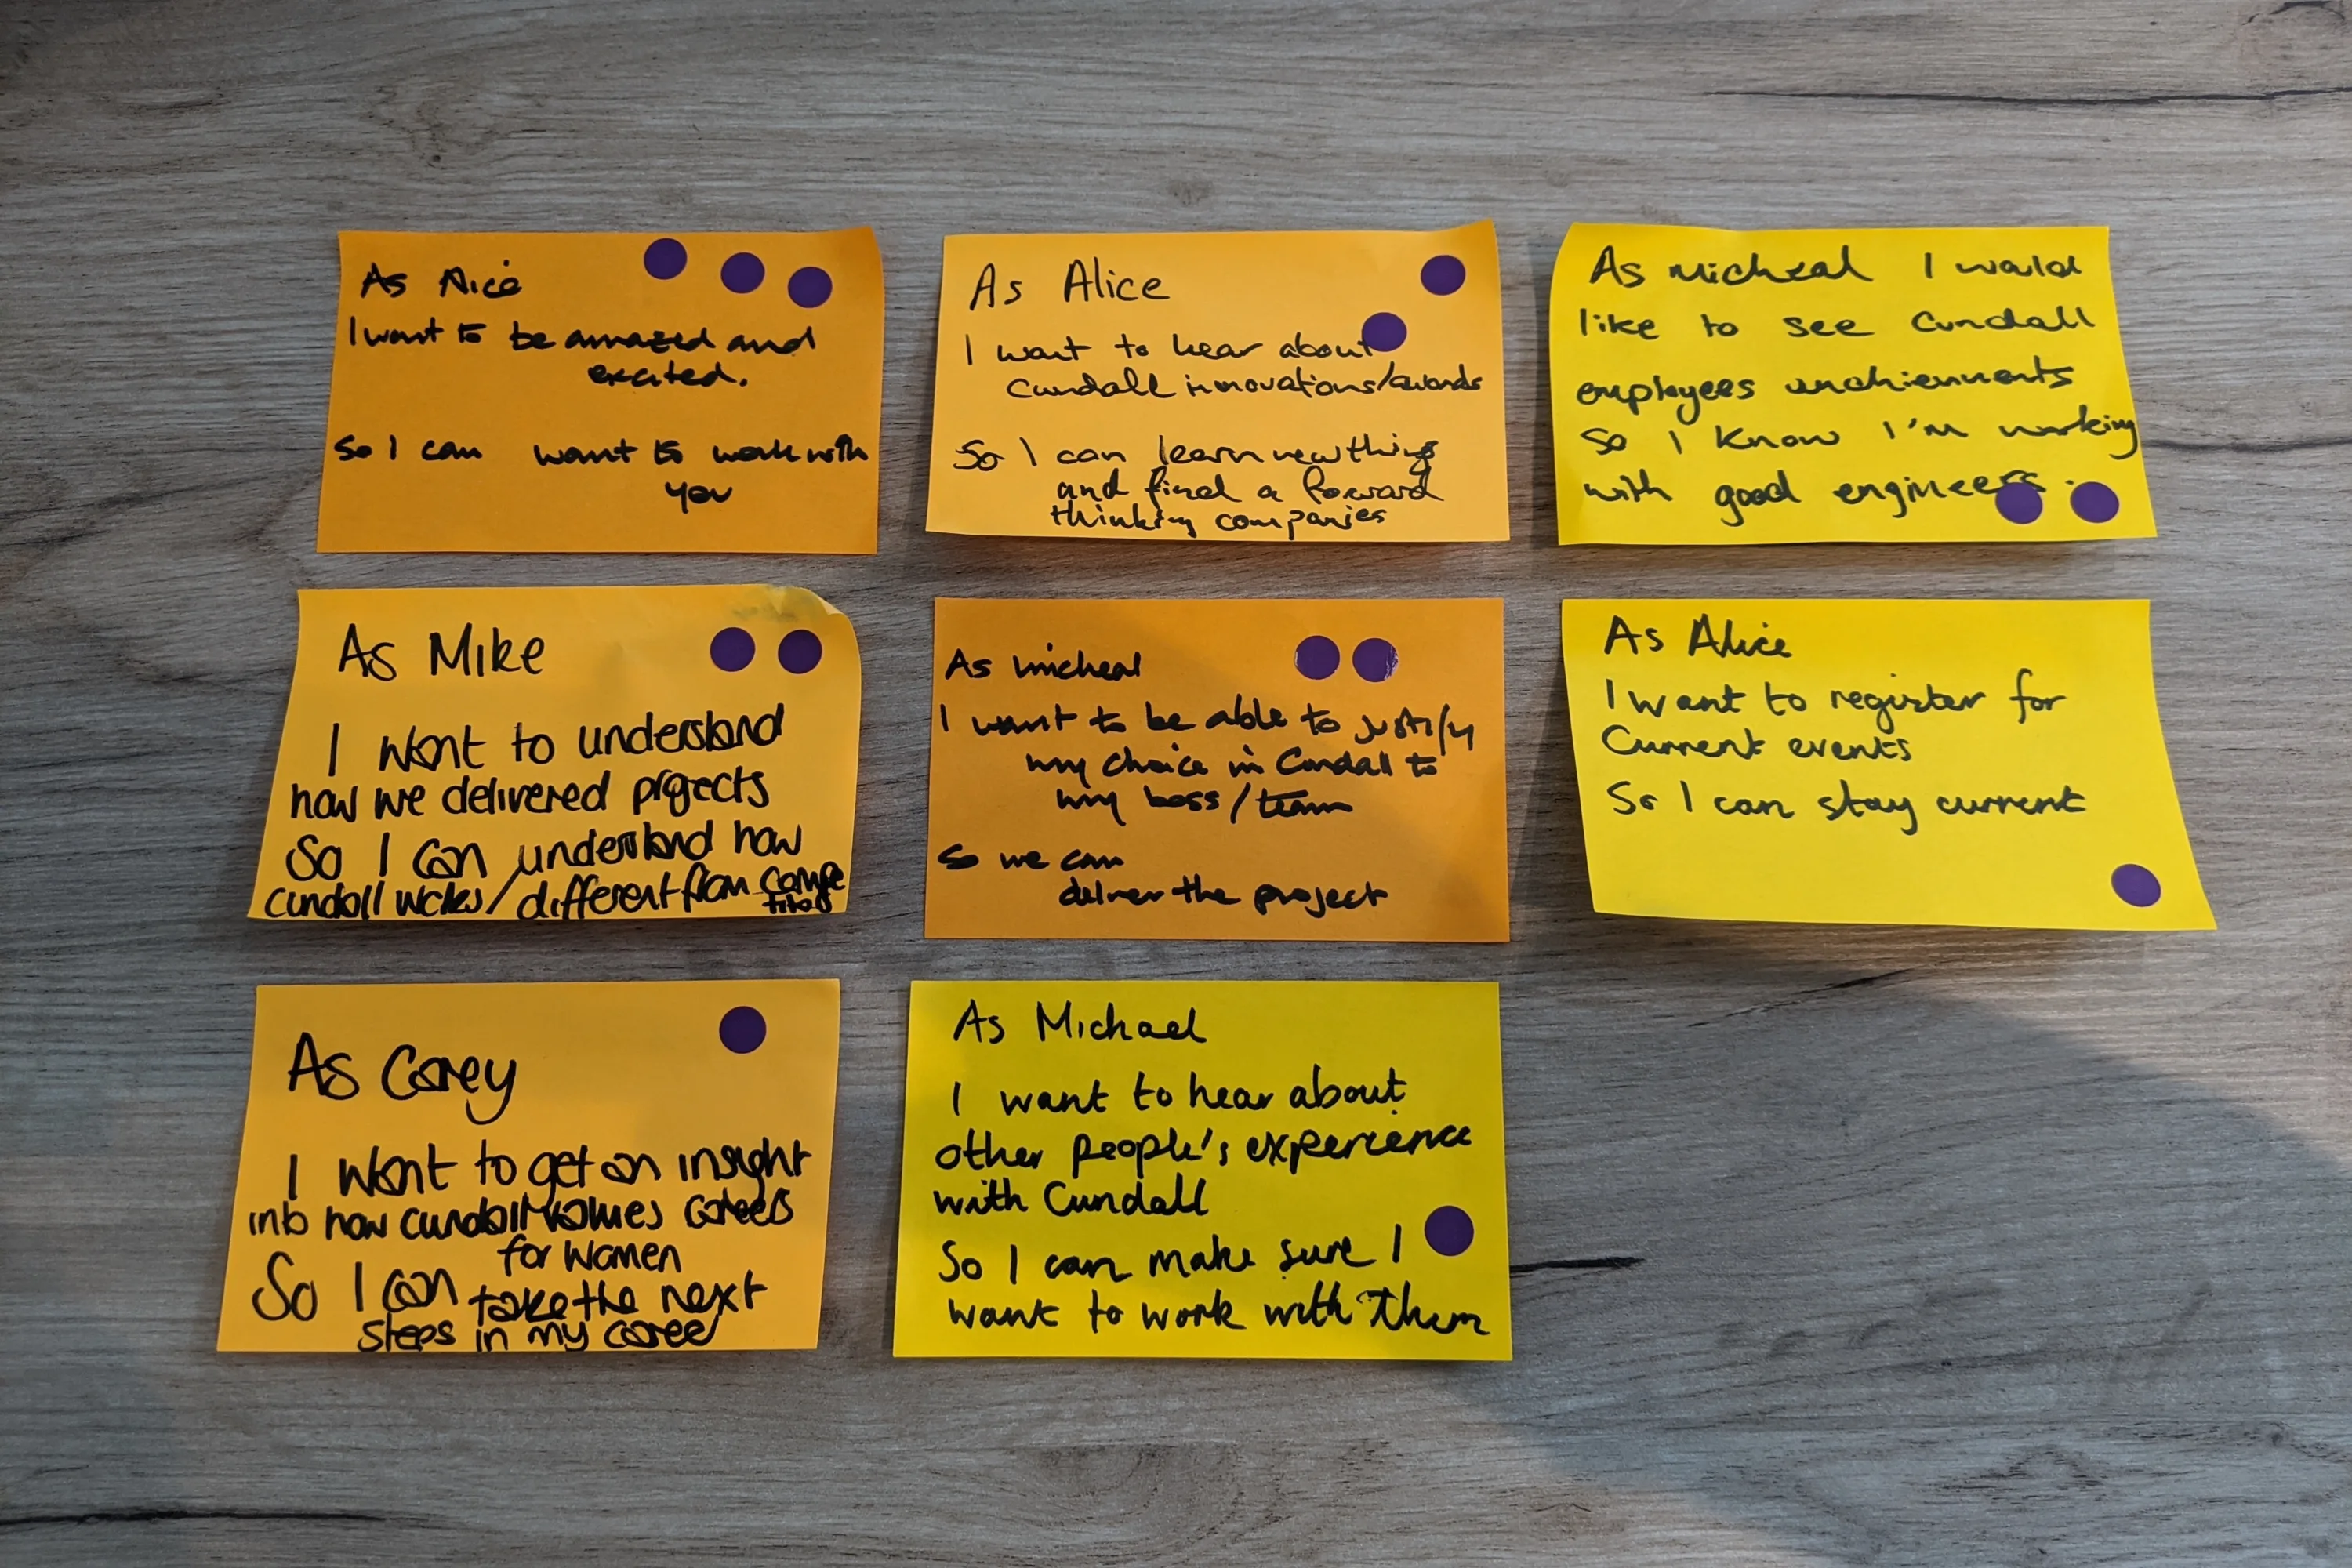 As Alice
I want to be amazed and
excited.
So I can want to work with
you
As Alice
I want to hear about
Cundall innovations/awards
So I can learn new things
and find a forward
thinking companies
As Micheal I would
like to see Cundall
employees
So I know I'm working
with good engineers.
As Mike
I want to understand
how we delivered projects
So I can understand how
cundall works/different from compe
As Micheal
I want to be able to justify
my choice in Cundall to
my boss/team
So we can
deliver the project
As Alice
I want to register for
Current events
So I can stay current
As Corey
I want to get an insight
into how cundall values careers
for women
So I can take the next
steps in my career
As Michael
I want to hear about
other people's experience
with Cundall
So I can make sure I
want to work with them